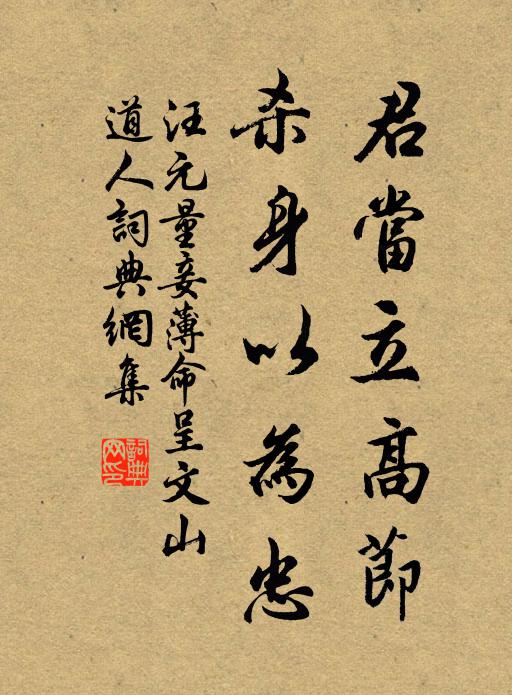 君當立高節
杀身以為忠
汪元量妾薄命呈文山
道人詞典網集
詞典网印